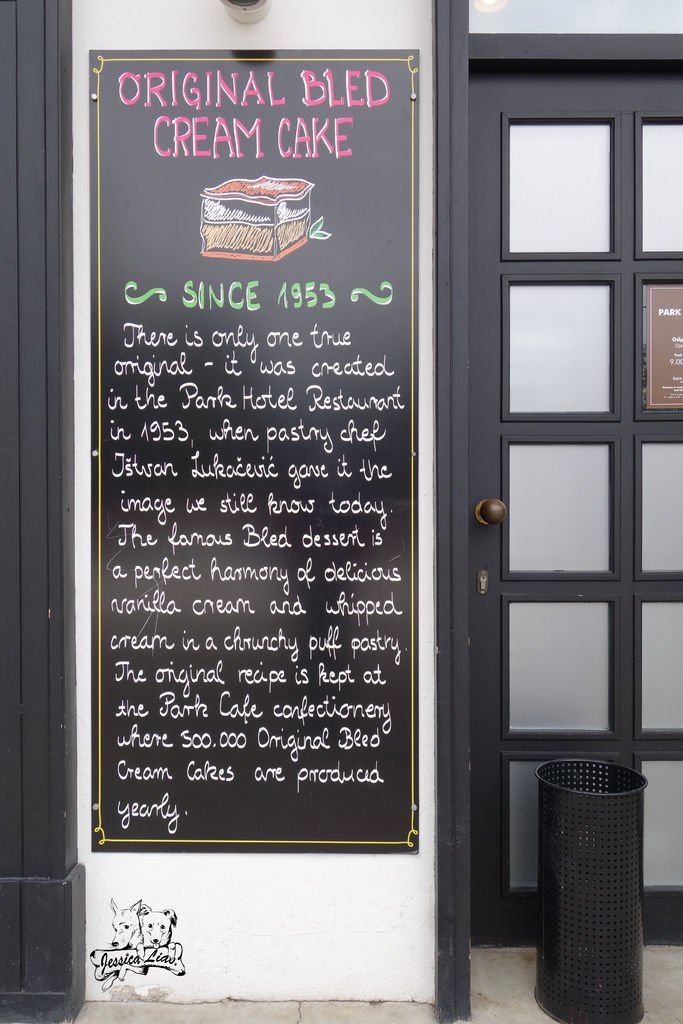 ORIGINAL BLED
CREAM CAKE
SINCE 1953
There is only one true
original - it was created
in the Park Hotel Restaurant
in 1953, when pastry chef
Ištvan Lukačević gave it the
image we still know today.
The famous Bled dessert is
a perfect harmony of delicious
vanilla cream and whipped
cream in a chrunchy puff pastry.
The original recipe is kept at
the Park Cafe confectionery
where 500.000 Original Bled
Cream Cakes are produced
yearly.
PARK
9.00
Jessica Liao.